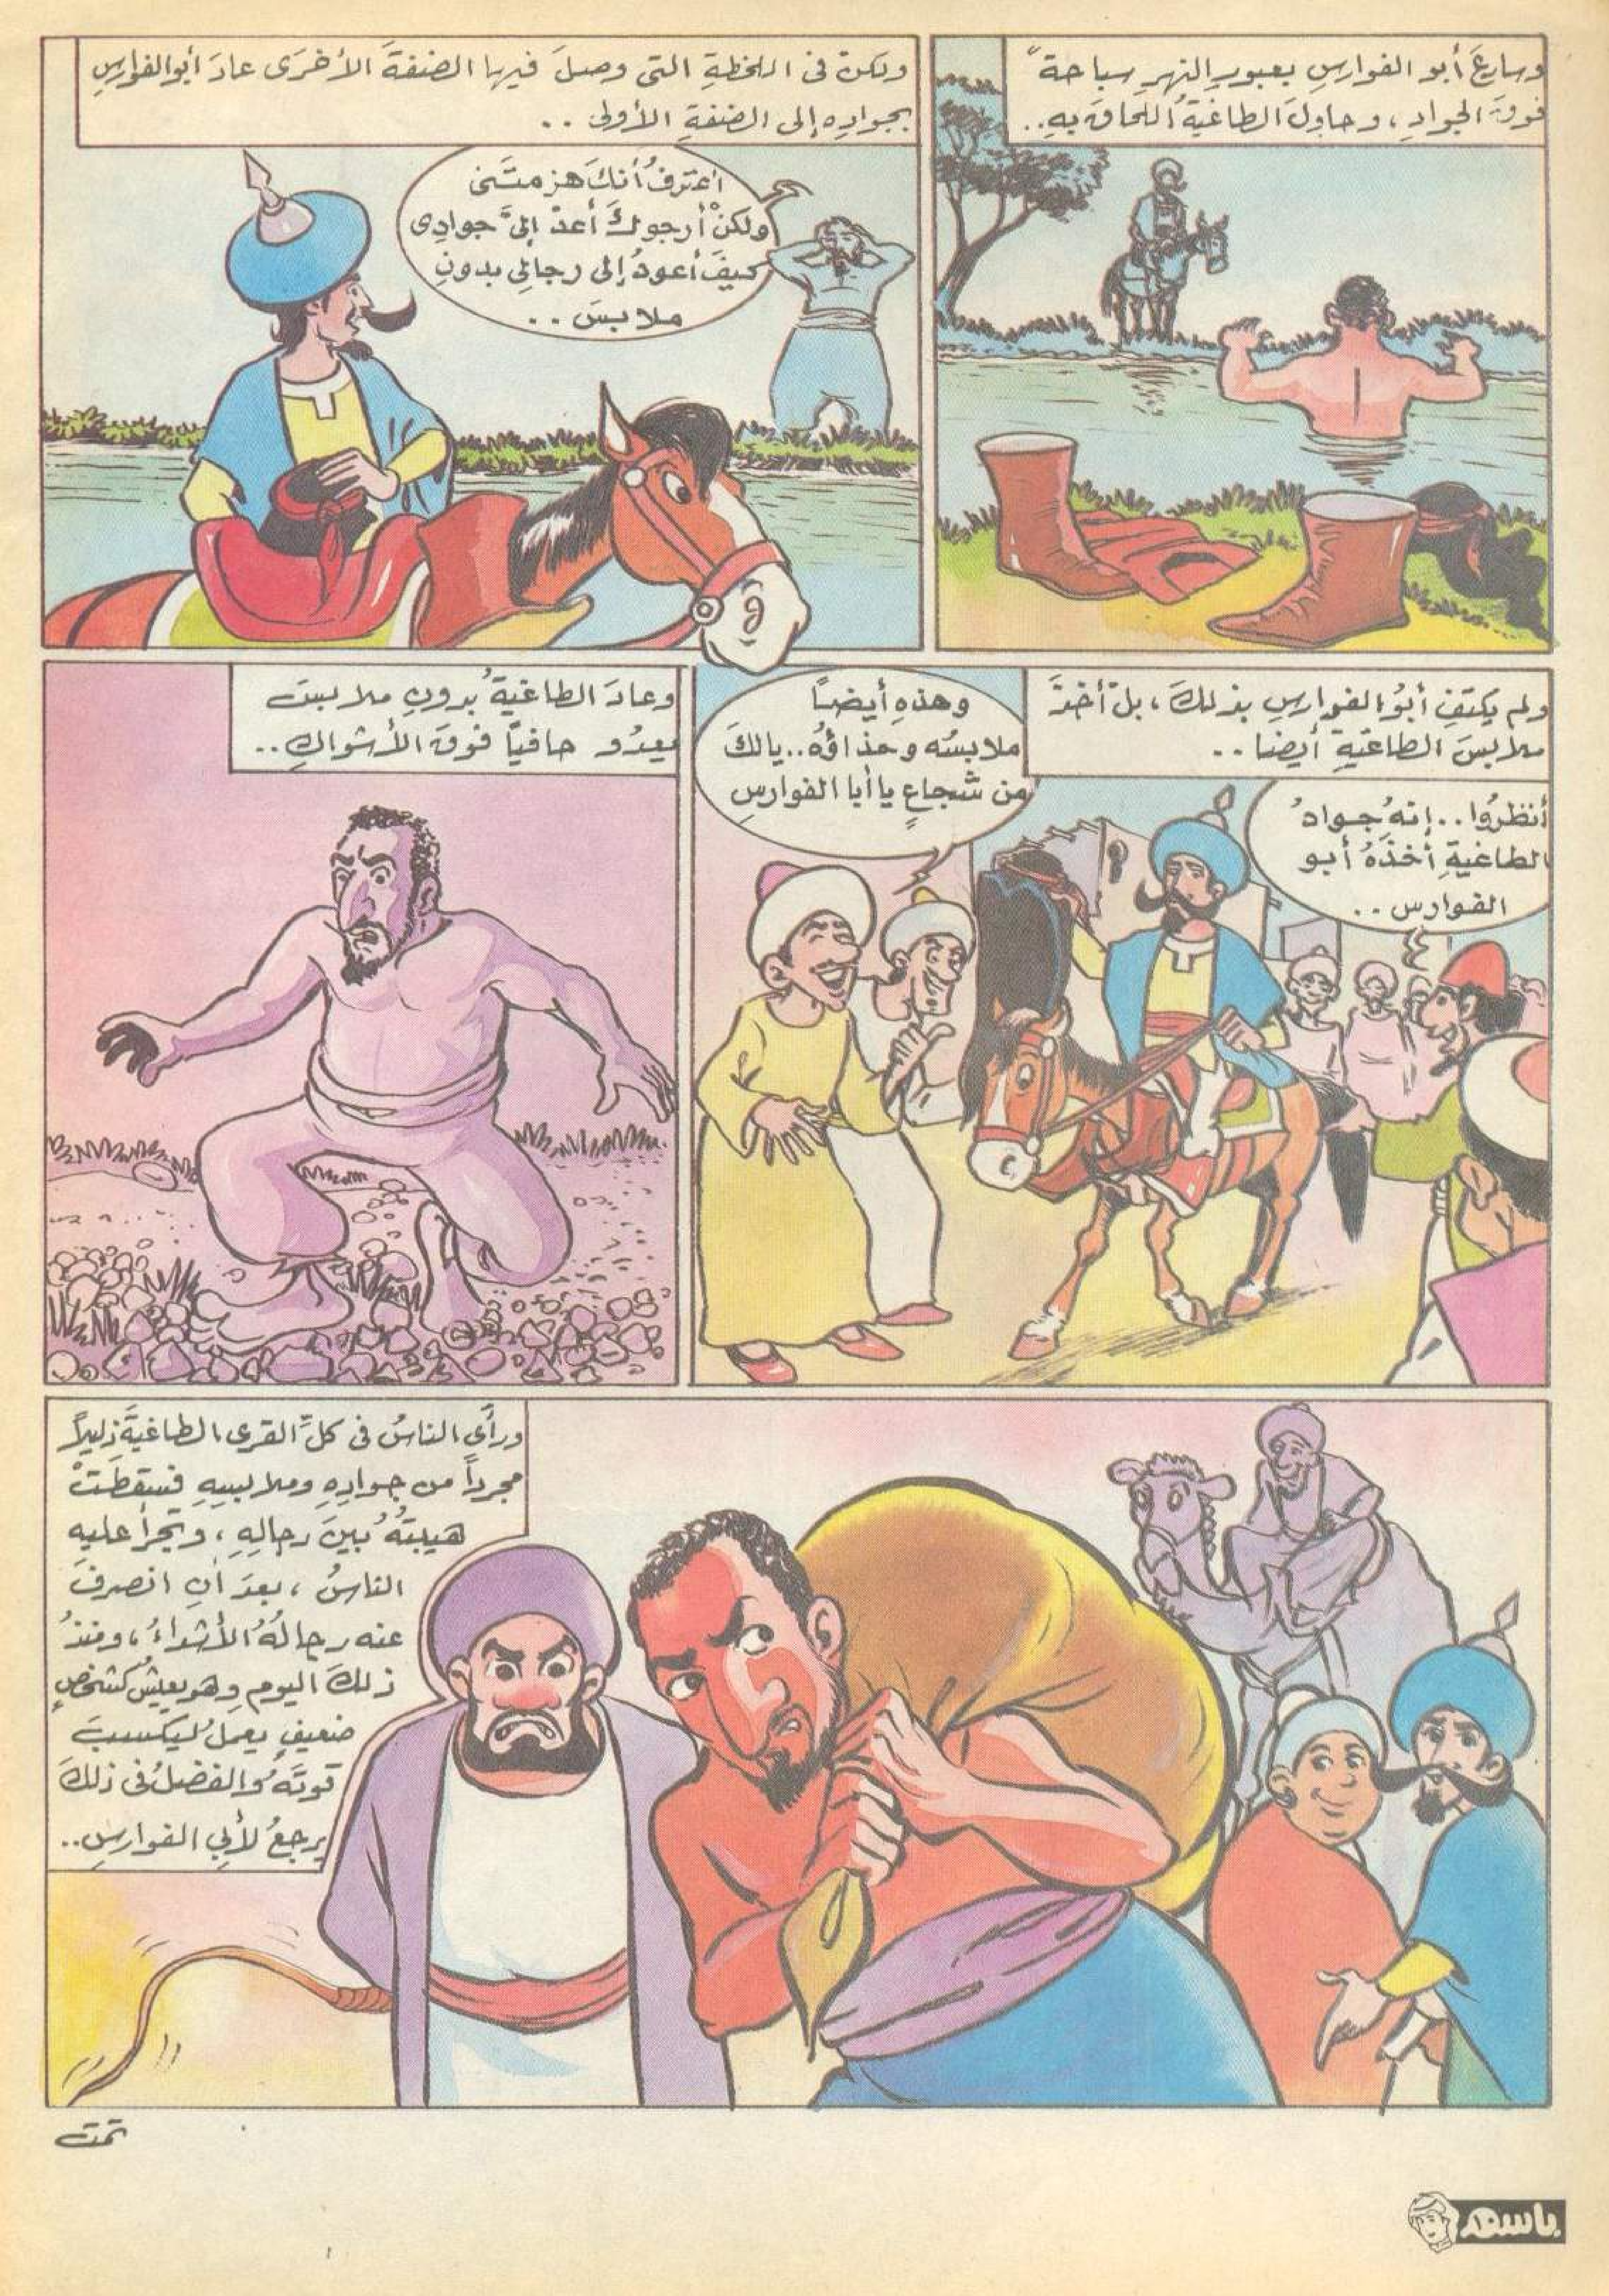 وسارعَ أبو الفوارسِ بعبورِ النهرِ سباحةً
فوقَ الجوادِ، وحاولَ الطاغيةُ اللحاقَ بهِ..
ولكنْ فى اللحظةِ التى وصلَ فيها الضفةَ الأخرَى عادَ أبوالفوارسِ
بجوادِهِ إلى الضفةِ الأولى ..
أعترفُ أنكَ هزمتَنى
ولكنْ أرجوكَ أعدْ إلىَّ جوادِى
كيفَ أعودُ إلى رجالِى بدونِ
ملابسَ ..
ولم يكتفِ أبوُ الفوارسِ بذلكَ، بلْ أخذَ
ملابسَ الطاغيةِ أيضا ..
أنظرُوا.. إنهُ جوادُ
الطاغيةِ أخذَهُ أبو
الفوارس ..
وهذهِ أيضاً
ملابسُه وحذاؤُه.. يالكَ
من شجاعٍ يا أبا الفوارسِ
وعادَ الطاغيةُ بدونِ ملابسَ
يعدُو حافيًا فوقَ الأشواكِ..
ورأَى الناسُ فى كلِّ القرى الطاغيةَ ذليلاً
مجرداً من جوادِهِ وملابسِهِ فسقطَتْ
هيبتُهُ بينَ رجالِهِ، وتجرأَ عليهِ
الناسُ، بعدَ أن انصرفَ
عنه رجالُهُ الأشداءُ، ومنذُ
ذلكَ اليومِ وهو يعيشُ كشخصٍ
ضعيفٍ يعملُ ليكسبَ
قوتَهُ والفضلُ فى ذلكَ
يرجعُ لأبِي الفوارسِ..
تمت
باسم